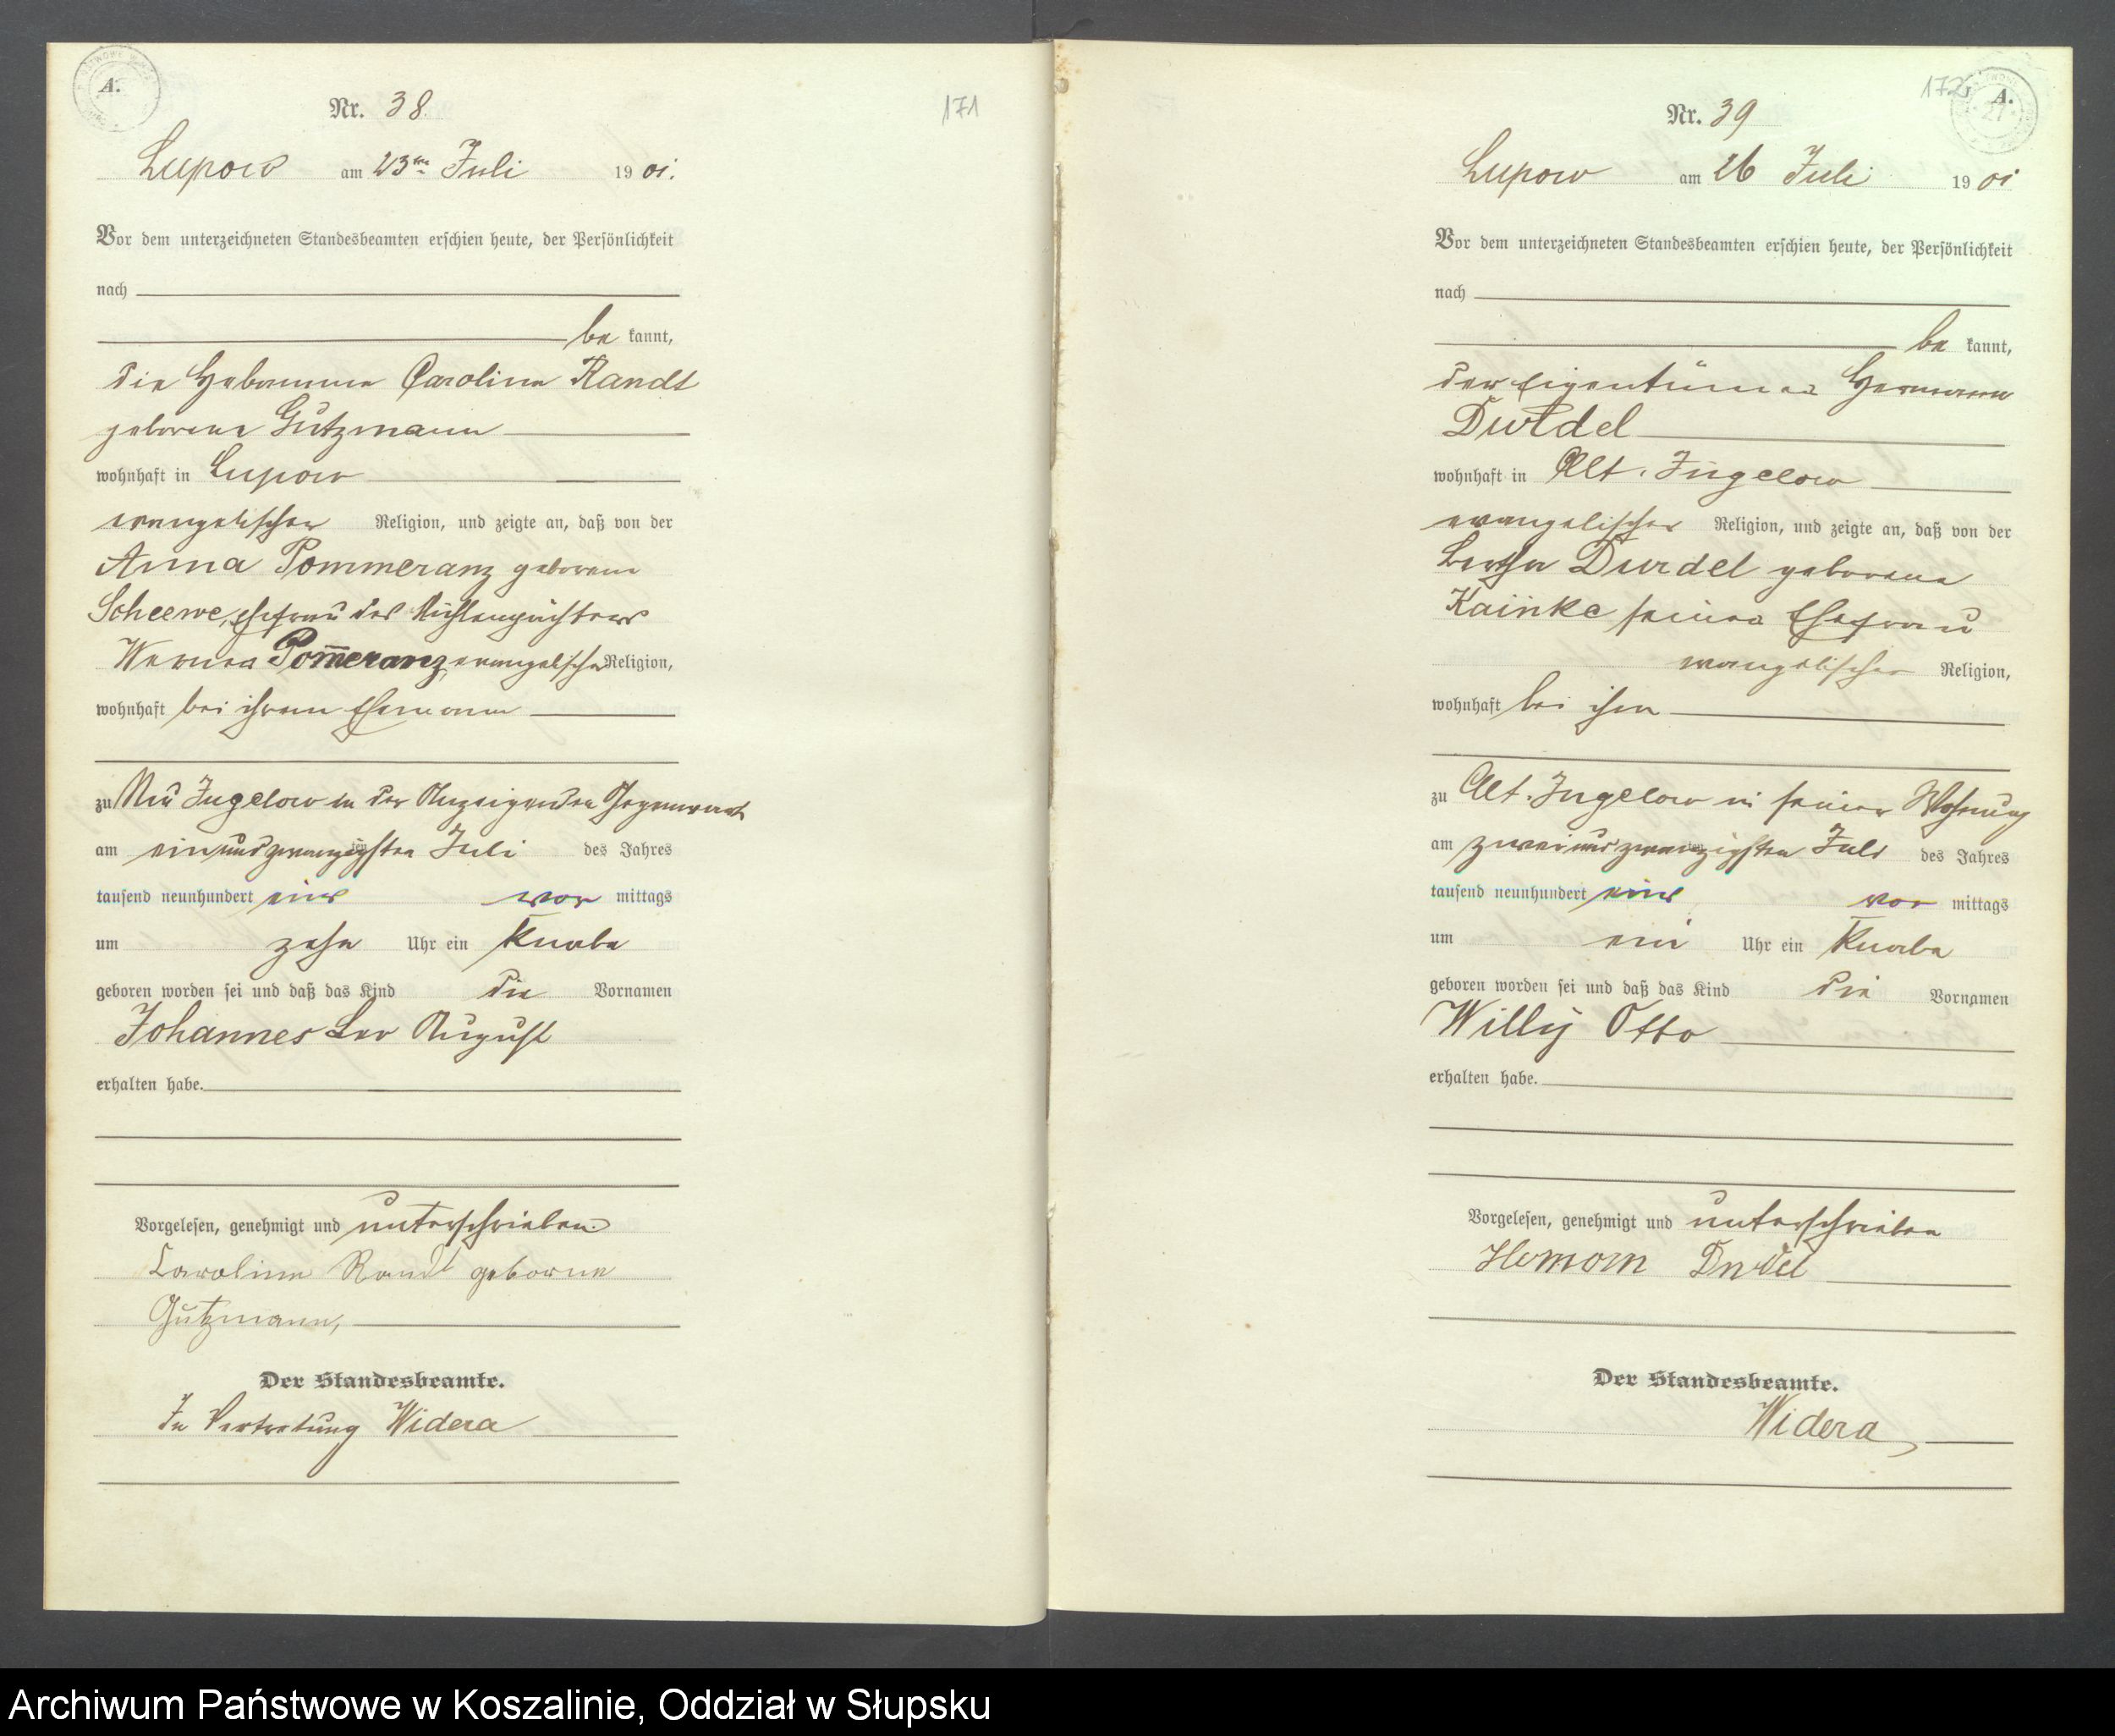 A.
Nr. 38.
171
Lupow am 23ten Juli 1901.
Vor dem unterzeichneten Standesbeamten erschien heute, der Persönlichkeit
nach
be kannt,
die Hebamme Caroline Randt
geborene Gutzmann
wohnhaft in Lupow
evangelischer Religion, und zeigte an, daß von der
Anna Pommeranz geborene
Scheewe, Ehefrau des Mühlenpächters
Werner Pom̅eranz, evangelischer Religion,
wohnhaft bei ihrem Ehemann
zu Neu Jugelow in der Anzeigenden Gegenwart
am einundzwanzigsten Juli des Jahres
tausend neunhundert eins vor mittags
um zehn Uhr ein Knabe
geboren worden sei und daß das Kind die Vornamen
Johannes Leo August
erhalten habe.
Vorgelesen, genehmigt und unterschrieben.
Caroline Randt geborne
Gutzmann,
Der Standesbeamte.
In Vertretung Widera
172 A.
Nr. 39
Lupow am 26 Juli 1901
Vor dem unterzeichneten Standesbeamten erschien heute, der Persönlichkeit
nach
be kannt,
der Eigentümer Hermann
Durdel
wohnhaft in Alt. Jugelow
evangelischer Religion, und zeigte an, daß von der
Bertha Durdel geborene
Kainke seiner Ehefrau
evangelischer Religion,
wohnhaft bei ihm
zu Alt. Jugelow in seiner Wohnung
am zweiundzwanzigsten Juli des Jahres
tausend neunhundert eins vor mittags
um ein Uhr ein Knabe
geboren worden sei und daß das Kind die Vornamen
Willy Otto
erhalten habe.
Vorgelesen, genehmigt und unterschrieben
Hermann Durdel
Der Standesbeamte.
Widera,
Archiwum Państwowe w Koszalinie, Oddział w Słupsku